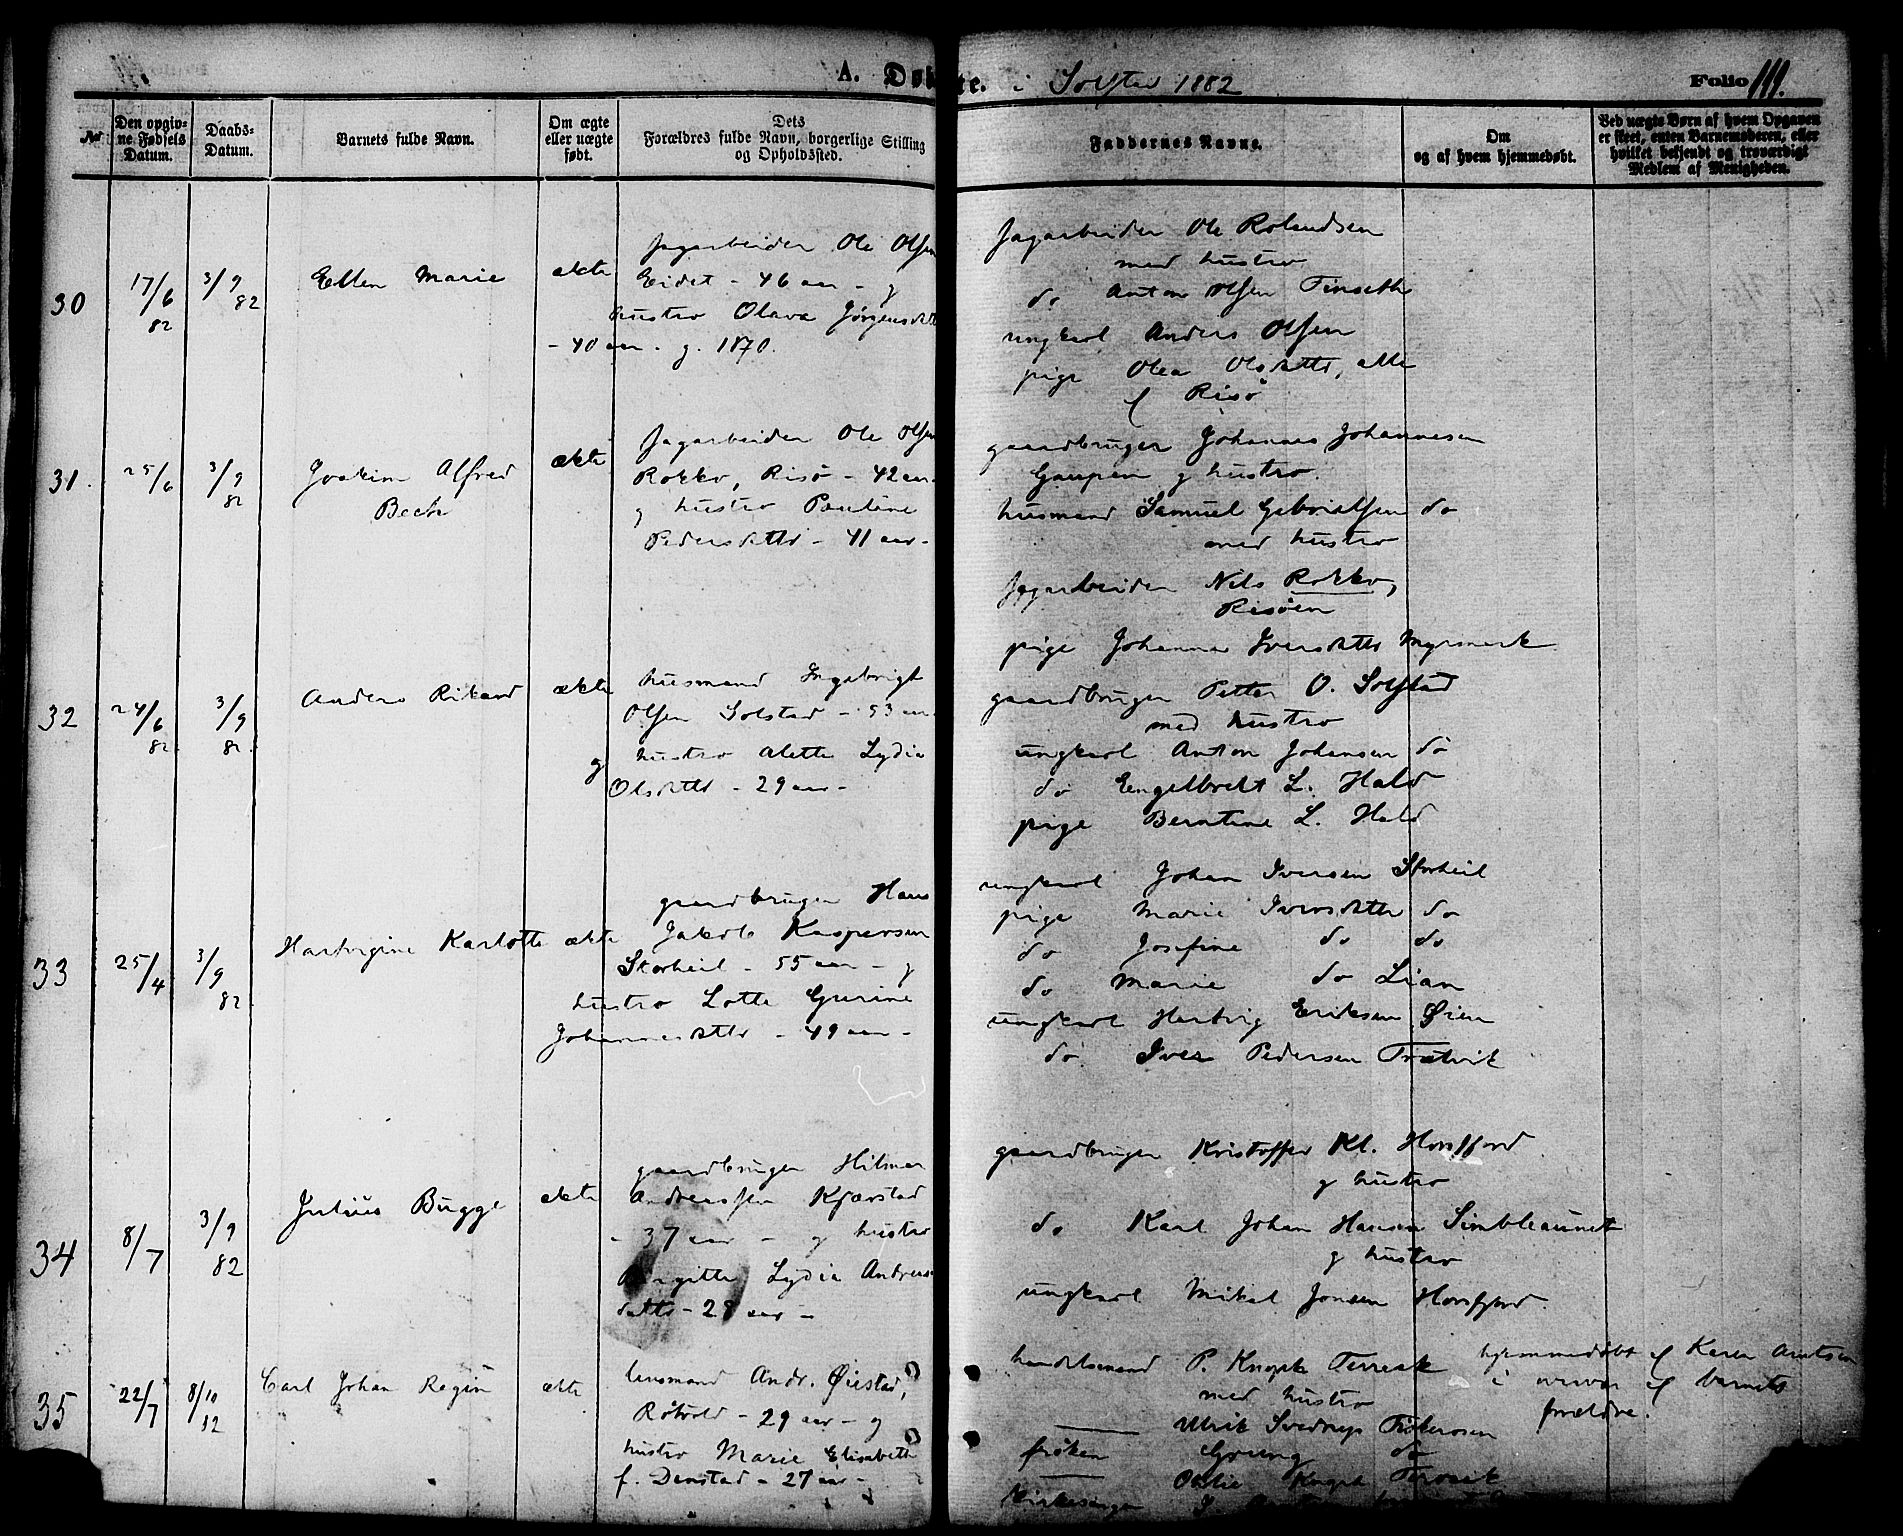 A. Døbte. i Solstad 1882
Folio 111.
No
Den opgiv-
ne Fødsels
Datum.
Daabs-
Datum.
Barnets fulde Navn.
Om ægte
eller uægte
født.
Dets
Forældres fulde Navn, borgerlige Stilling
og Opholdssted.
Faddernes Navne.
Om
og af hvem hjemmedøbt.
Ved uægte Børn af hvem Opgaven
er skeet, enten Barnemoderen, eller
hvilket bekjendt og troværdigt
Medlem af Menigheden.
30
17/6 82
3/9 82
Ellen Marie
ekte
jagarbeider Ole Olsen
Eidet - 46 aar - g
hustro Olava Jørgensdttr
- 40 aar - g. 1870.
jagarbeider Ole Rolandsen
med hustro
do Anton Olsen Finseth
ungkarl Anders Olsen
pige Olea Olsdttr, alle
f Risö
31.
25/6
3/9 82
Joakim Alfred
Bech
ækte
jagarbeider Ole Olsen
Rokko, Risö - 42 aar
g hustro Pauline
Pedersdttr - 41 aar -
gaardbruger Johannes Johannesen
Gaupen g hustro.
husmand Samuel Gabrielsen do
med hustro
jagarbeider Nils Rokko,
Risöen
pige Johanna Iversdttr Myrmark
32
24/6 82
3/9 82.
Anders Rikard
ækte
husmand Ingebrigt
Olsen Solstad - 53 aar -
g hustro Alette Lydia
Olsdttr - 29 aar -
gaardbruger Petter O. Solstad
med hustro
ungkarl Anton Johansen do
do Engelbrekt L. Hald
pige Berntine L. Hald
33
25/4
3/9 82
Hartvigine Karlotte
ækte
gaardbruger Hans
Jakob Kaspersen
Storheil - 55 aar - g
hustro Lotte Gurine
Johannesdttr - 49 aar -
ungkarl Johan Iversen Storheil
pige Marie Iversdttr do
do Josefine do do
do Marie do Lian
ungkarl Hartvig Eriksen Øien
do Iver Pedersen Trælvik
34
8/7
3/9 82
Julius Bugge
ekte
gaardbruger Hilmar
Andreassen Kjærstad
- 37 aar - g hustro
Birgitte Lydia Andreas
dattr - 28 aar -
gaardbruger Kristoffer Kl. Horsfjord
g hustro
do Karl Johan Hansen Simbleaunet
g hustro
ungkarl Mikal Jonsen Horsfjord.
35
22/7
8/10 82
Carl Johan Regin
ækte
lensmand Andr. Øiestad,
Røtvold - 29 aar - g
hustro Marie Elisabeth
f. Denstad - 27 aar -
handelsmand P. Knoph Terraak
med hustro
Ulrik Svedrup
frøken Greung do
Othie Knoph Terraak
kirkesanger
hjemmedøbt f Karen Arntsen
i overvær af barnets
forældre.